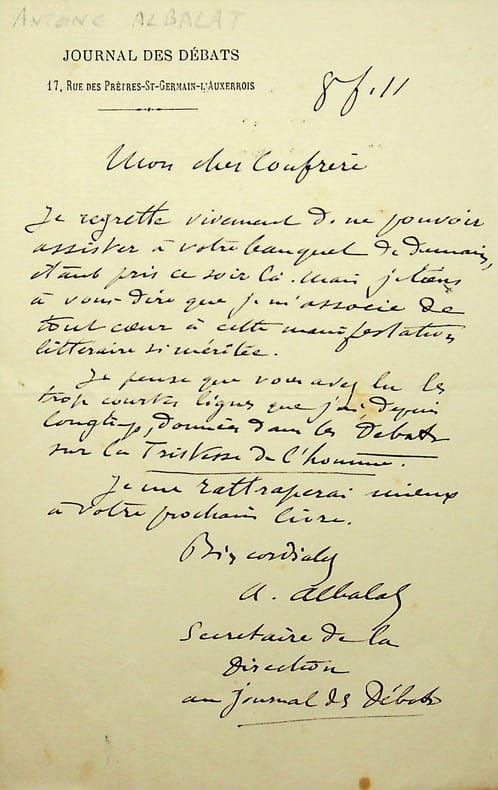 ANTOINE ALBALAT
JOURNAL DES DÉBATS
17, RUE DES PRÊTRES-ST-GERMAIN-L'AUXERROIS
8 f. 11
Mon cher Confrère
Je regrette vivement de ne pouvoir
assister à votre banquet de demain,
étant pris ce soir là. Mais je tiens
à vous dire que je m'associe de
tout cœur à cette manifestation
littéraire si méritée.
Je pense que vous avez lu les
trop courtes lignes que j'ai, depuis
longtemps, données dans les Débats
sur la Tristesse de l'homme.
Je me rattraperai mieux
à votre prochain livre.
Bien cordialt
A. Albalat
Secretaire de la
Direction
au Journal des Débats